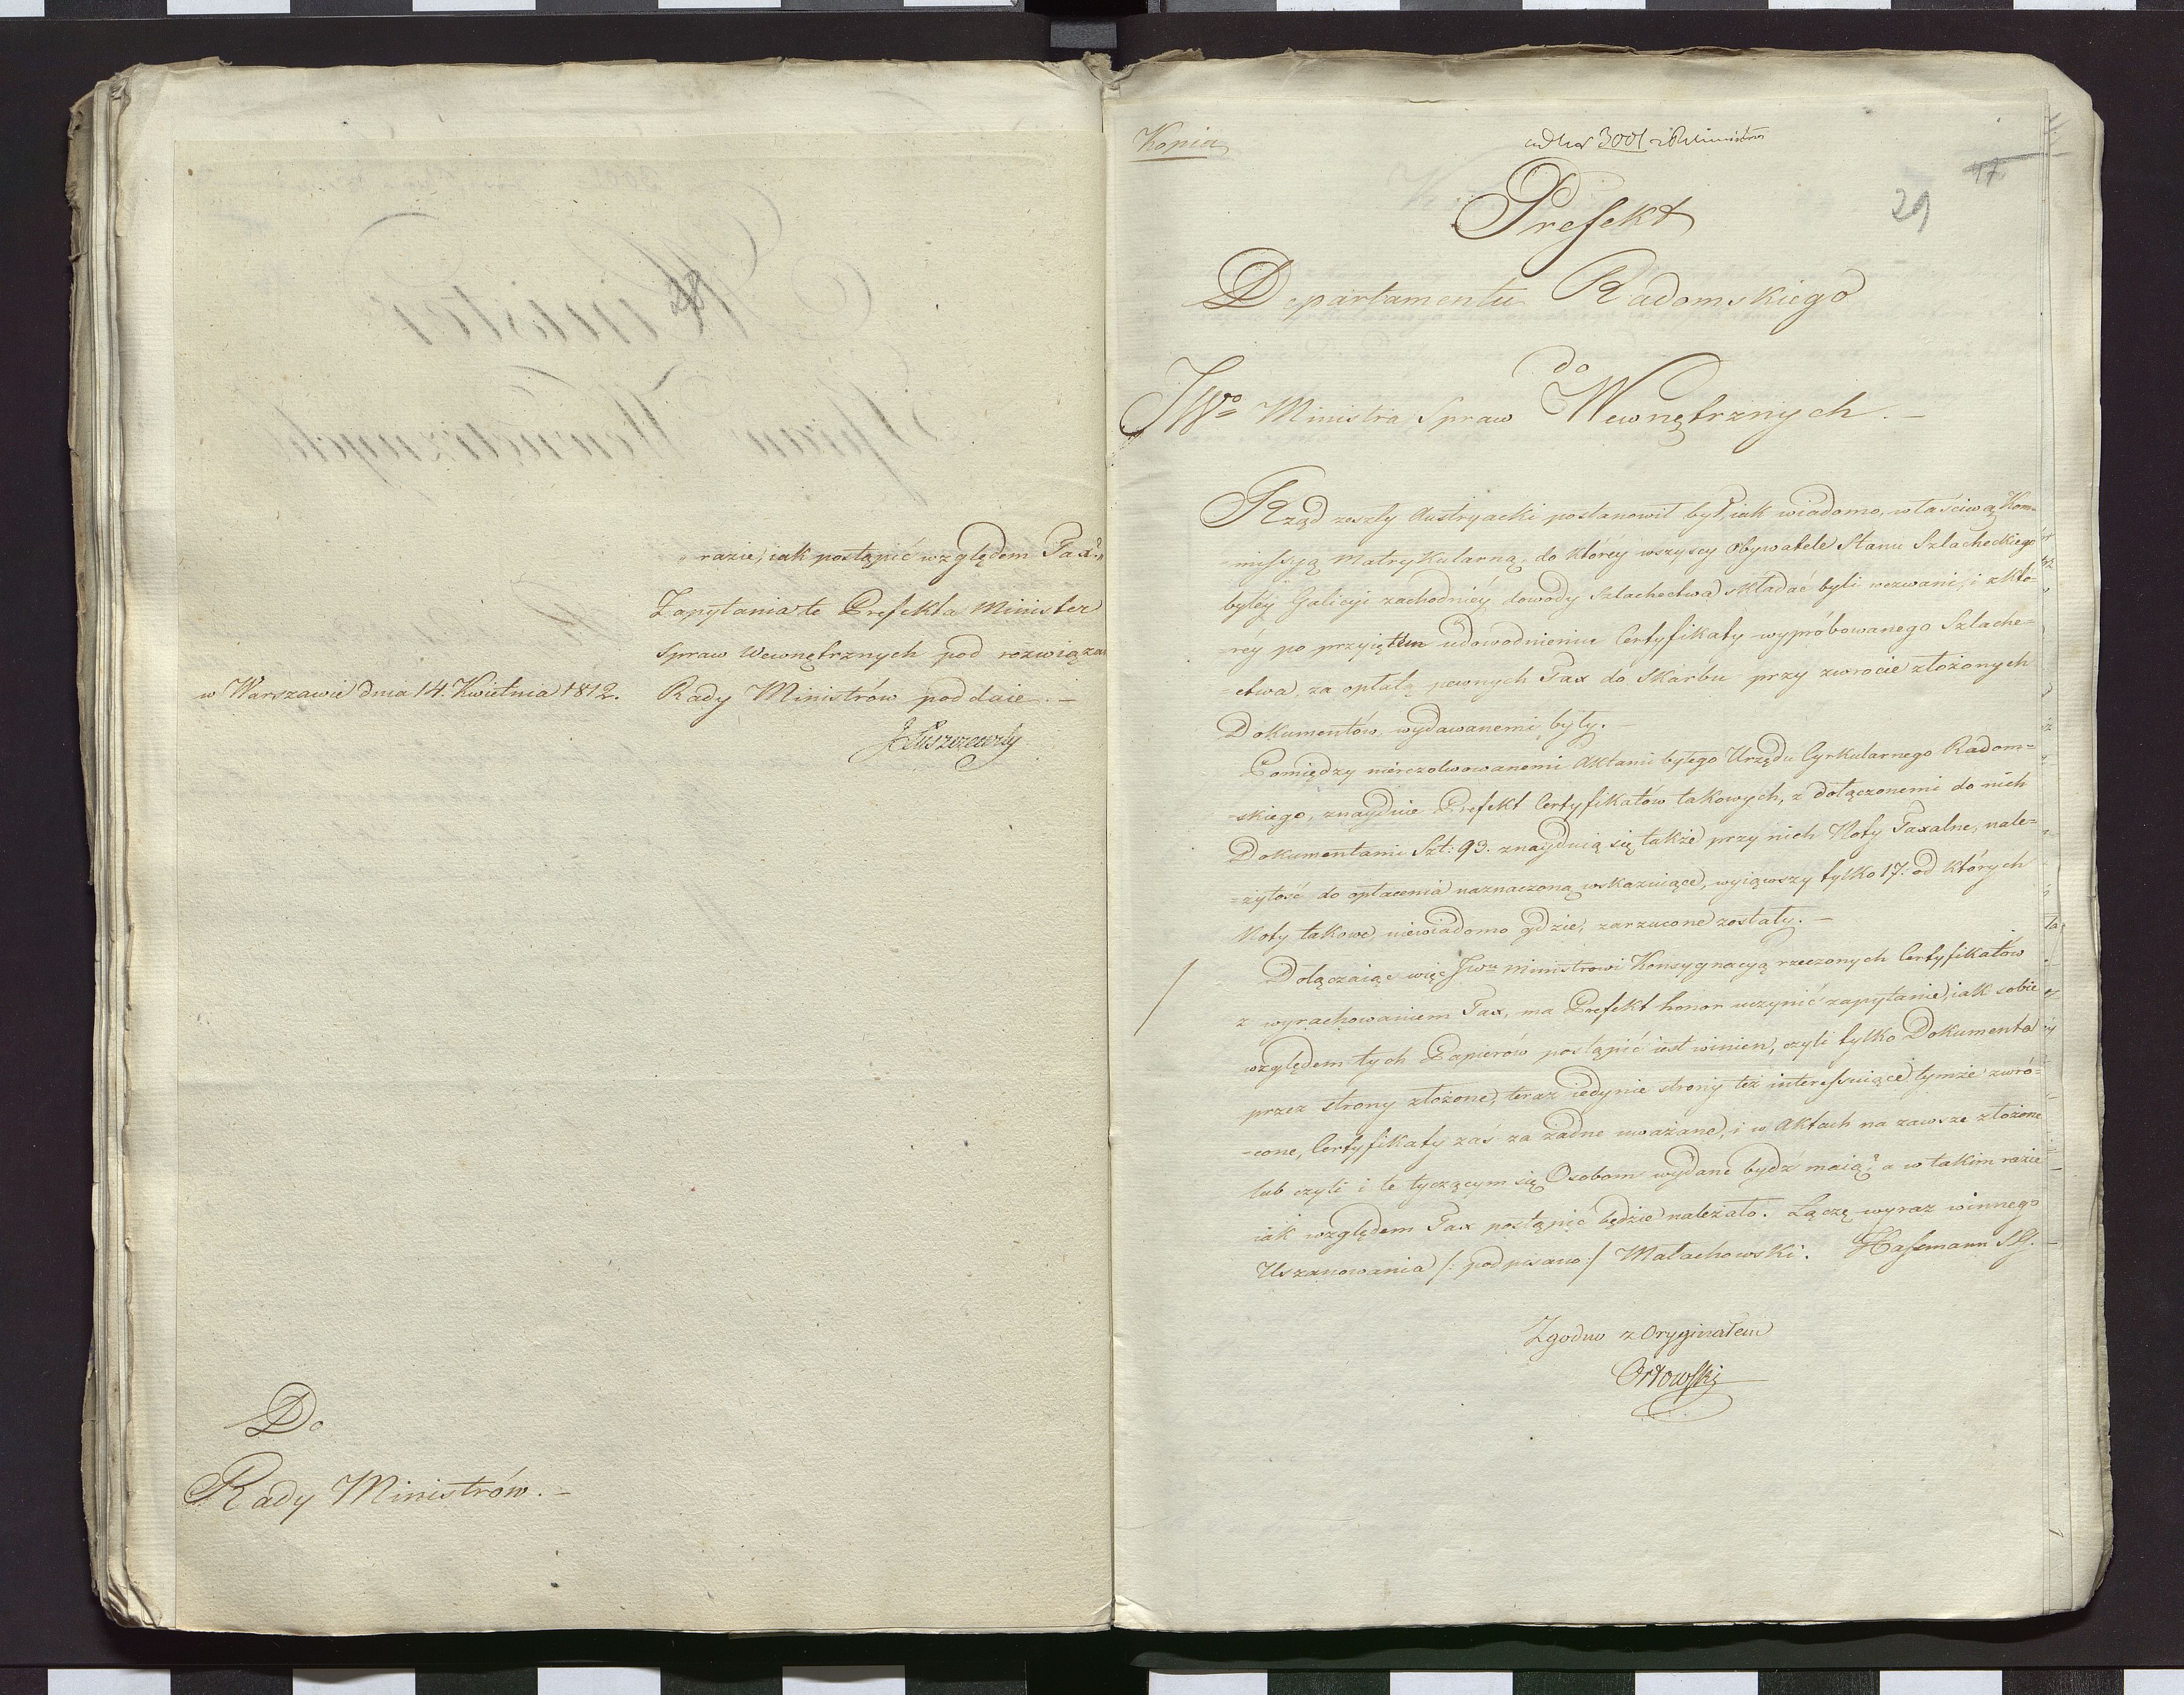 „razie, iak postąpić względem Tax?„
Zapytania te Prefekta Minister
Spraw Wewnętrznych pod rozwiąza
w Warszawie dnia 14. Kwietnia 1812.
Rady Ministrów poddaie. –
JŁuszczewsky
Do
Rady Ministrów. –
Kopia
ad Nr 3001
47
29
Prefekt
Departamentu Radomskiego
do
JWo Ministra Spraw Wewnętrznych. –
Rząd zeszły Austryacki postanowił był, iak wiadomo, właściwą Kom=
=missyą Matrykularną, do którey wszyscy Obywatele Stanu Szlacheckiego
byłéy Galicyi zachodniéy dowody Szlachectwa składać byli wezwani, i z któ=
réy po przyiętém udowodnieniu Certyfikaty wypróbowanego Szlache=
=ctwa, za opłatą pewnych Tax do Skarbu przy zwrocie złożonych
Dokumentów, wydawanemi były. –
Pomiędzy nierezolwowanemi Aktami byłego Urzędu Cyrkularnego Radom=
=skiego, znayduie Prefekt Certyfikatów takowych, z dołączonemi do nich
Dokumentami Szt: 93. znayduią się także przy nich Noty Taxalne, nale=
=żytość do opłacenia naznaczoną wskazuiące, wyiąwszy tylko 17. od których
Noty takowe, niewiadomo gdzie, zarzucone zostały. –
Dołączaiąc więc JWu Ministrowi Konsygnacyą rzeczonych Certyfikatów
z wyrachowaniem Tax, ma Prefekt honor uczynić zapytanie, iak sobie
względem tych Papierów postąpić iest winien, czyli tylko Dokumenta
przez strony złożone, teraz iedynie strony też interessuiące tymże zwró=
=cone, Certyfikaty zaś za żadne uważane, i w Aktach na zawsze złożone
lub czyli i te tyczącym się Osobom wydane bydź maią? a w takim razie
iak względem Tax postąpić będzie należało. Łączę wyraz winnego
Uszanowania /: podpisano :/ Małachowski. Hassmann SG.
Zgodno z Oryginałem
Orłowski